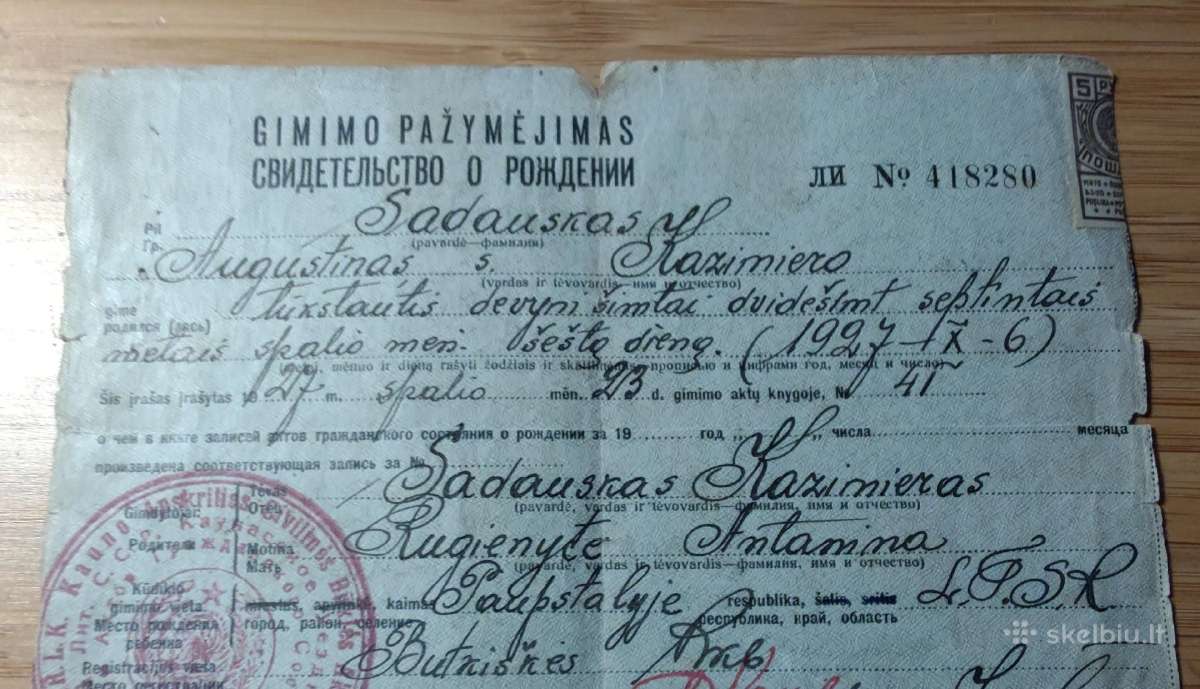 GIMIMO PAŽYMĖJIMAS
СВИДЕТЕЛЬСТВО О РОЖДЕНИИ
ЛИ № 418280
5
Pil.
Гр.
Sadauskas
(pavardė—фамилия)
Augustinas s. Kazimiero
(vardas ir tėvovardis—имя и отчество)
gimė
родился (лась)
tūkstantis devyni šimtai dvidešimt septintais
metais spalio mėn. šeštą dieną. (1927-IX-6)
(metai, mėnuo ir dieną rašyti žodžiais ir skaitlinėmis—прописью и цифрами год, месяц и число)
Šis įrašas įrašytas 1927 m. spalio mėn. 23 d. gimimo aktų knygoje, № 41
о чем в книге записей актов гражданского состояния о рождении за 19 год „ “ числа месяца
произведена соответствующая запись за №
Gimdytojai:
Родители
Tėvas
Отец
Sadauskas Kazimieras
(pavardė, vardas ir tėvovardis—фамилия, имя и отчество)
Motina
Мать
Rugienytė Antanina
(pavardė, vardas ir tėvovardis—фамилия, имя и отчество)
Kūdikio
gimimo vieta:
Место рождения
ребенка
miestas, apylinkė, kaimas Paupstalyje respublika, šalis, sritis L.T.S.R
город, район, селение республика, край, область
Registracijos vieta
Место регистрации
Butkiškės
skelbiu.lt